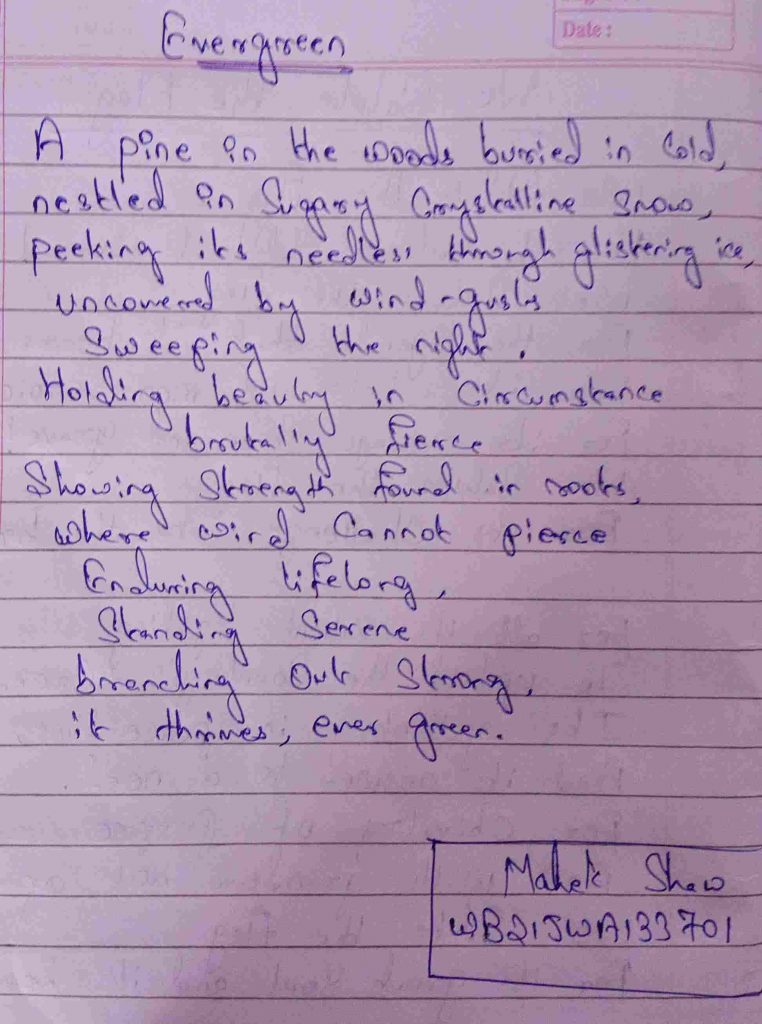 Date:
Evergreen
A pine in the woods buried in cold,
nestled in Sugary Crystalline Snow,
peeking its needless through glistering ice,
uncovered by wind-gusts
Sweeping the night.
Holding beauty in Circumstance
brutally fierce
Showing Strength found in roots,
where wind Cannot pierce
Enduring lifelong,
Standing Serene
branching Out Strong,
it thrives, ever green.
Mahek Shaw
WB21SWA133701